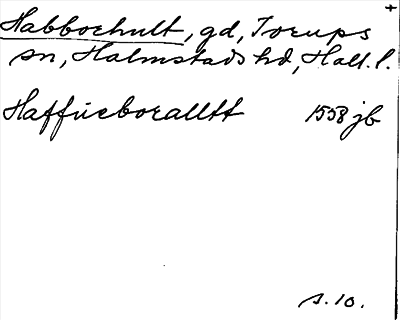 Habborhult, gd, Torups +
sn, Halmstads hd, Hall. l.
Haffueboralltt 1558 jb
s. 10.